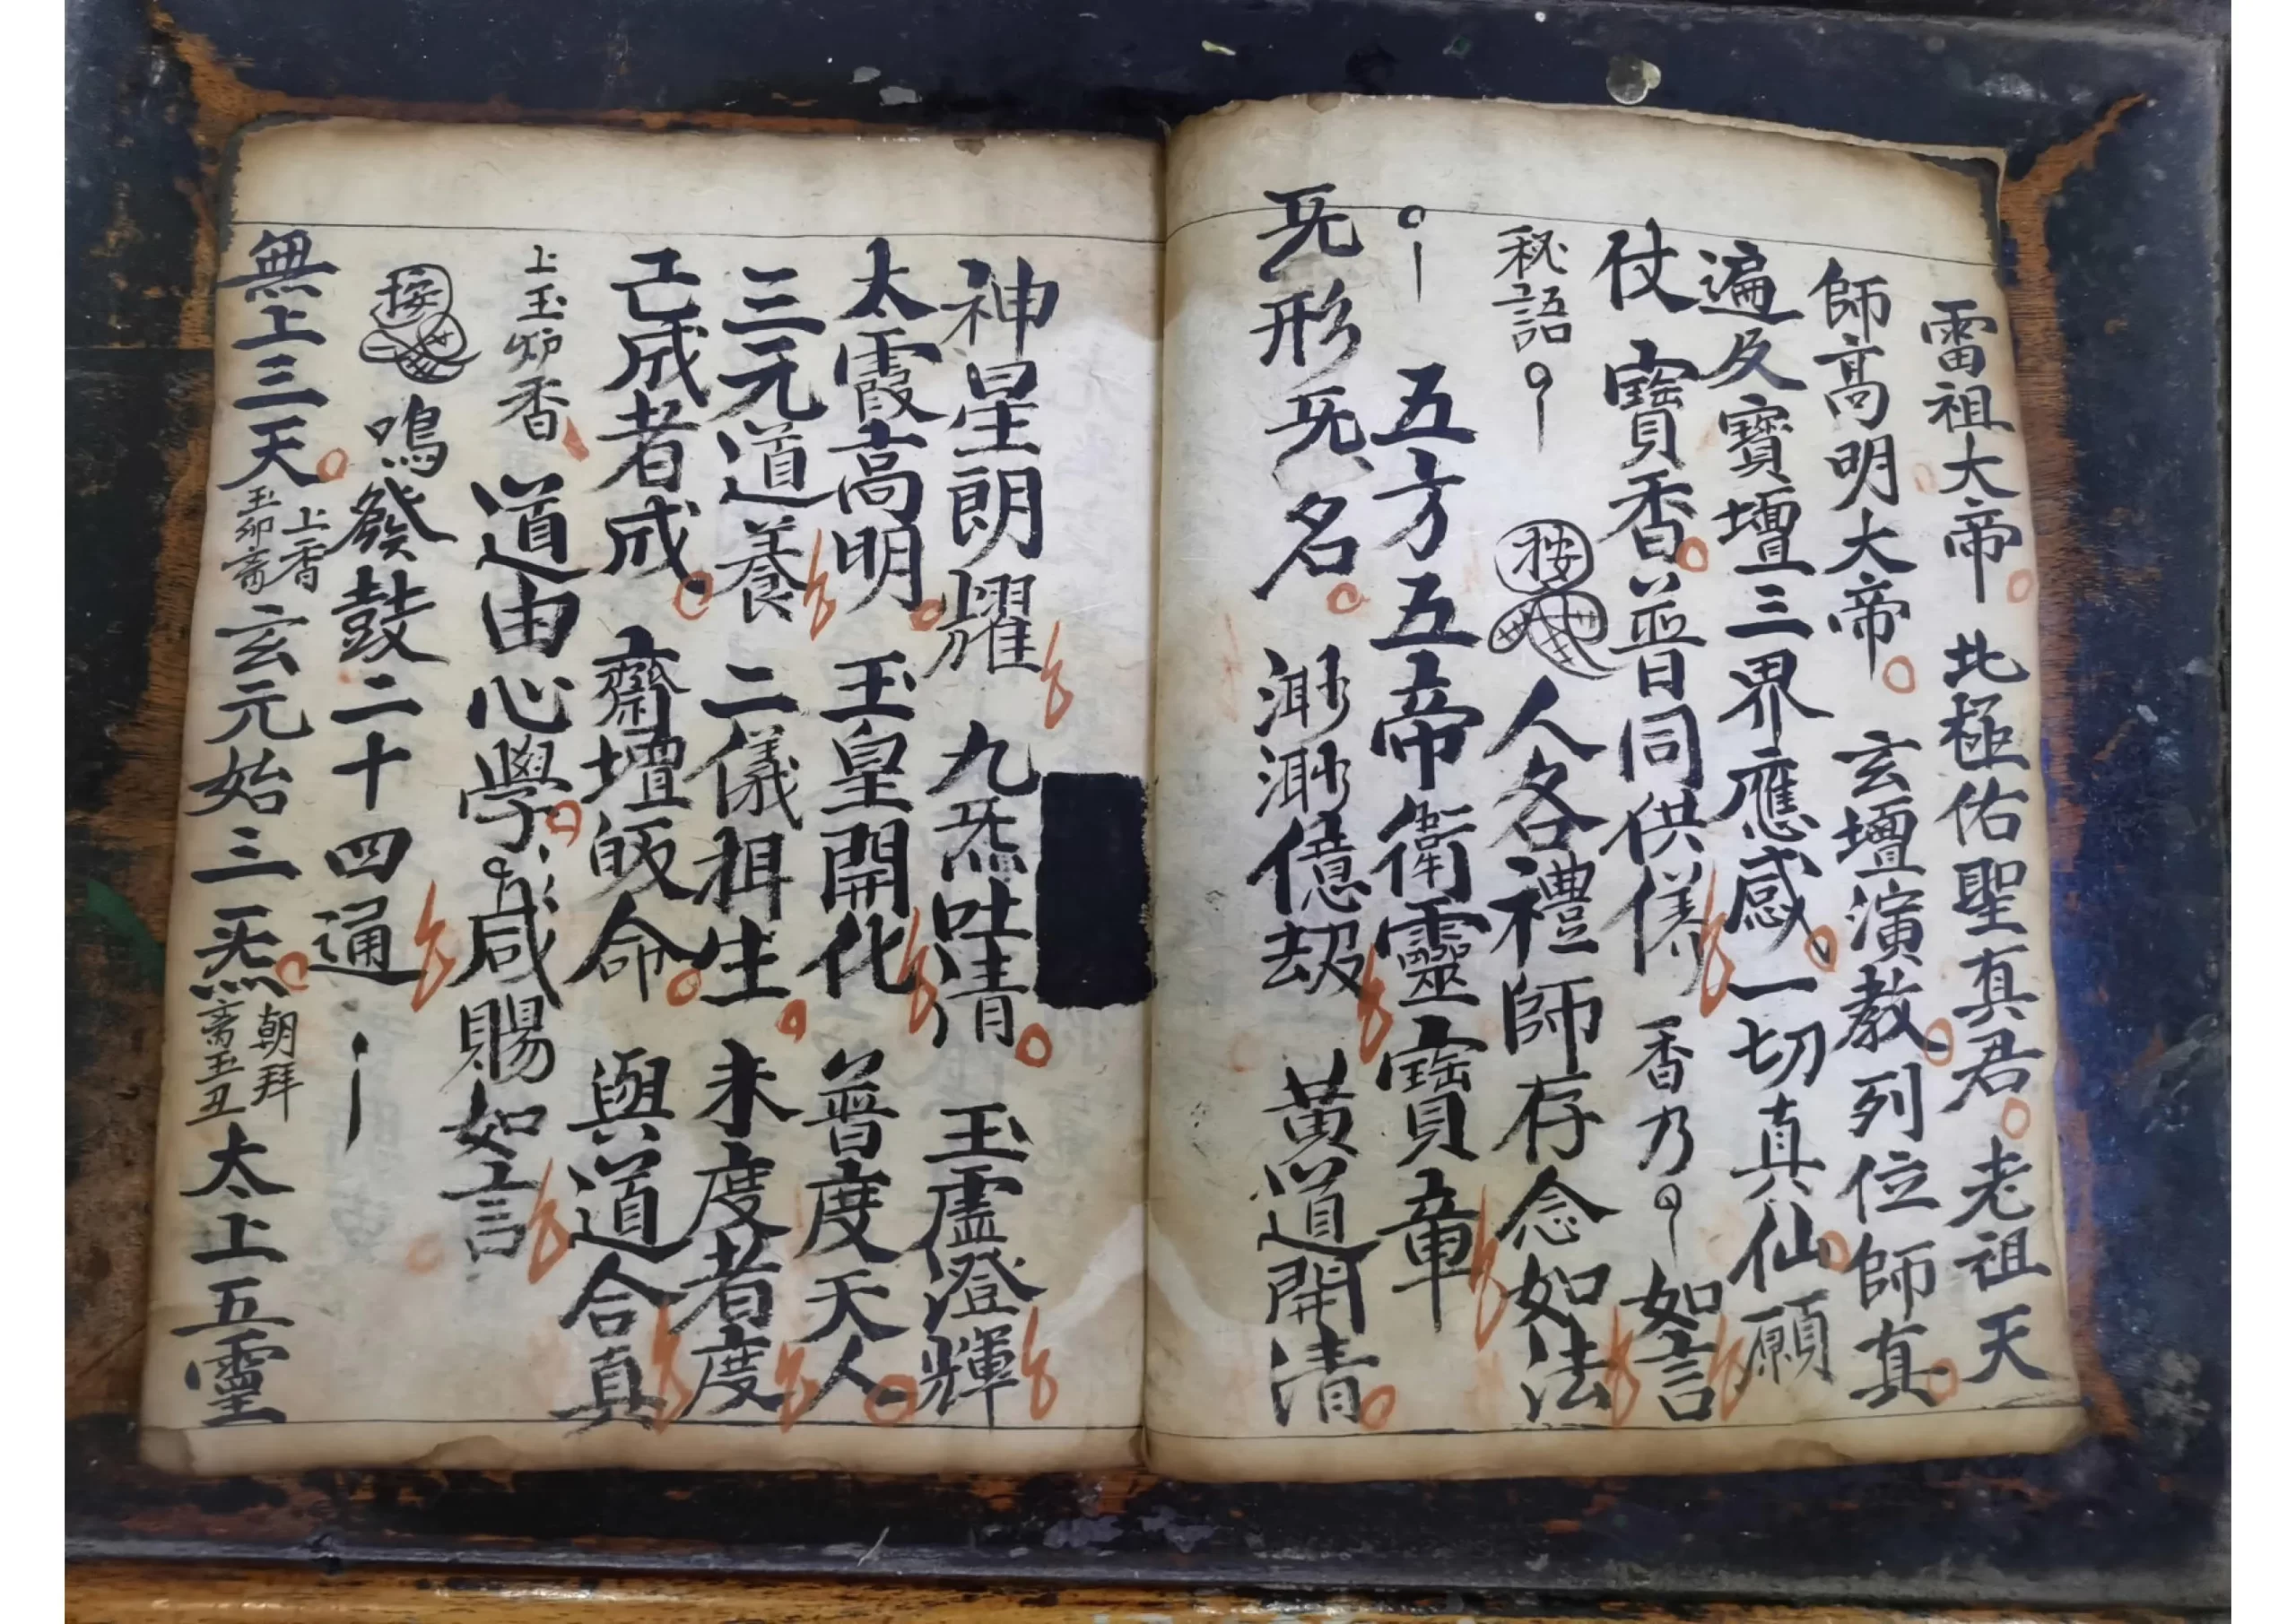 雷祖大帝 北極佑聖真君 老祖天
師高明大帝 玄壇演教列位師真
遍及寶壇三界應感一切真仙願
仗寳香普同供養 香乃 如言
秘語 按 人各禮師存念如法
五方五帝衛靈寳章
旡形旡名 渺渺億劫 黃道開清
神星朗耀 九炁吐清 玉虛澄輝
太霞高明 玉皇開化 普度天人
三元道養 二儀 生 未度者度
亡成者成 齋壇皈命 與道合真
上玉炉香 道由心學 咸賜如言
按 鳴發鼓二十四通
無上三天 上香 玉卯齋 玄元始三炁 朝拜 齋玉丑 太上五靈